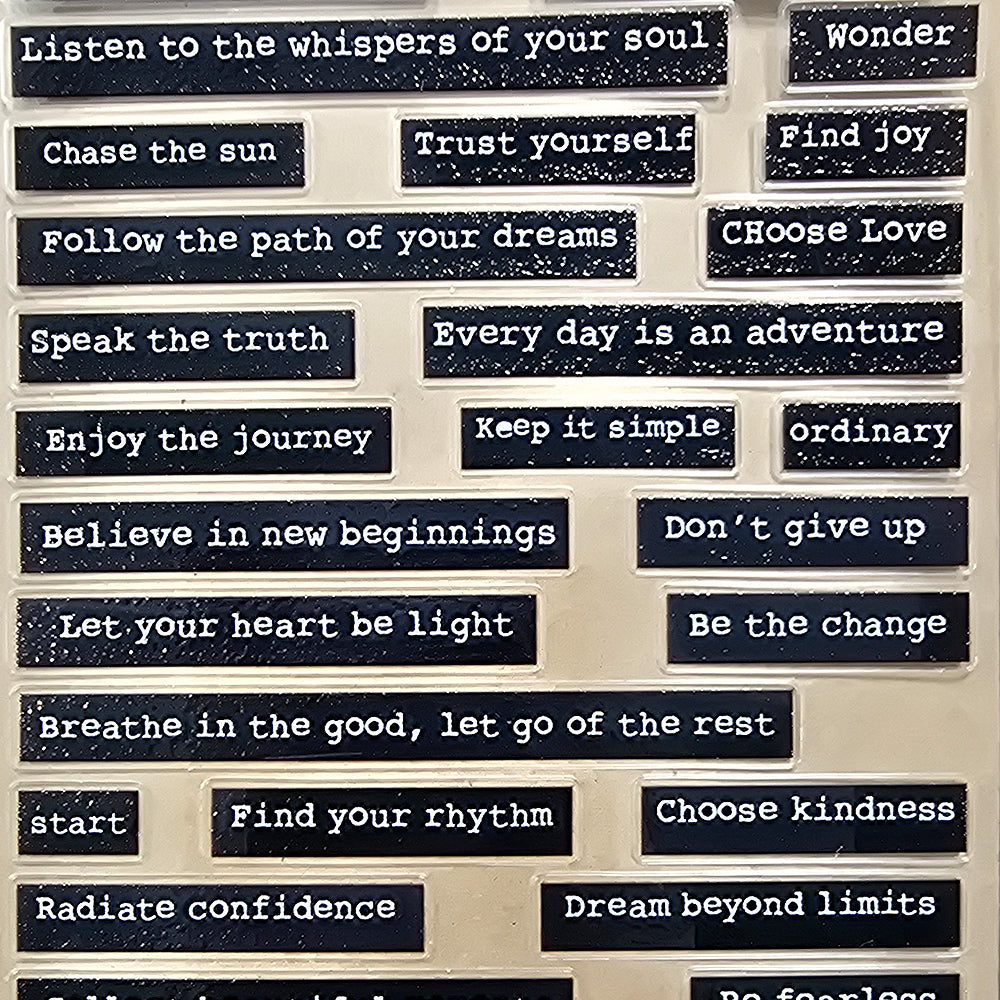 Listen to the whispers of your soul Wonder
Chase the sun Trust yourself Find joy
Follow the path of your dreams CHoose Love
Speak the truth Every day is an adventure
Enjoy the journey Keep it simple ordinary
Believe in new beginnings Don't give up
Let your heart be light Be the change
Breathe in the good, let go of the rest
start Find your rhythm Choose kindness
Radiate confidence Dream beyond limits
Be fearless